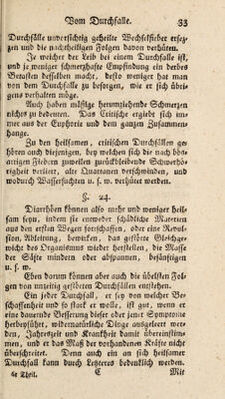 Vom Durchfalle. 33
Durchfälle unvorsichtig geheilte Wechselfieber erset-
zen und die nachtheiligen Folgen davon verhüten.
Je weicher der Leib bei einem Durchfalle ist,
und je weniger schmerzhafte Empfindung ein derbes
Betasten desselben macht, desto weniger hat man
zu befürchten, er werde gefährlich, wie er sich übri-
gens auch verhalten möge.
Auch haben mäßige herumziehende Schmerzen
nichts zu bedeuten. Das Critische ergiebt sich im-
mer aus der Euphorie und dem ganzen Zusammen-
hange.
Zu den heilsamen, critischen Durchfällen ge-
hören auch diejenigen, bey welchen sich die nach
bösartigen Fiebern zuweilen zurückbleibende Schwerhö-
rigkeit verliert, alte Quartanen verschwinden, und
wodurch Wassersuchten u. s. w. verhütet werden.
§. 24.
Diarrhöen können also mehr und weniger heil-
sam seyn, indem sie entweder schädliche Materien
aus den ersten Wegen fortschaffen, oder eine Revul-
sion, Ableitung, bewirken, das gestörte Gleichge-
wicht des Organismus wieder herstellen, die Masse
der Säfte mindern oder abspannen, besänftigen
u. s. w.
Eben darum können aber auch die übelsten Fol-
gen von unzeitig gestopften Durchfällen entstehen.
Ein jeder Durchfall, er sey von welcher Be-
schaffenheit und so stark er wolle, ist gut, wenn
er eine gewisse Euphorie unter dieser oder jener Symptome
herbeyführt, widernatürliche Dinge ausgeleert wer-
den, Jahrszeit und Krankheit damit übereinstim-
men, und er das Maß der vorhandenen Kräfte nicht
überschreitet. Denn auch ein an sich heilsamer
Durchfall kann durch Letzteres bedenklich werden.
4r Theil. C Mit